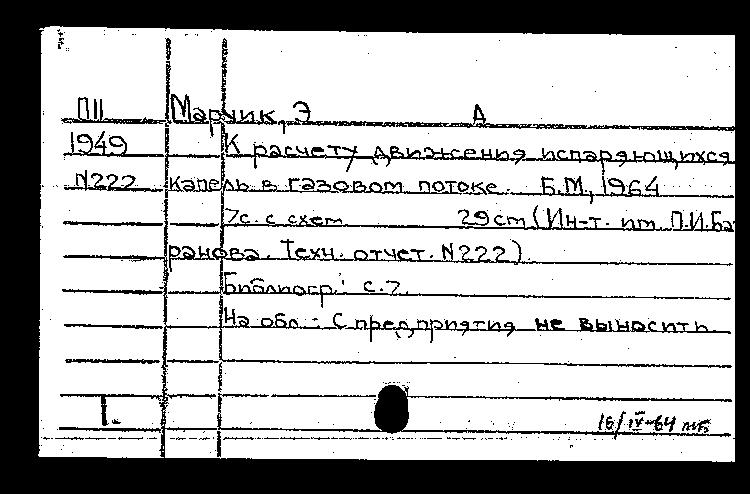 ПII Марчик, Э А
1949 К расчету движения испаряющихся
N222 капель в газовом потоке. Б.М., 1964
7с. с схем. 29 cm (Ин-т. им. П.И.Ба-
ранова. Техн. отчет. N222).
Библиогр.: с.7.
На обл.: С предприятия не выносить
1.
16/IV-64 мб